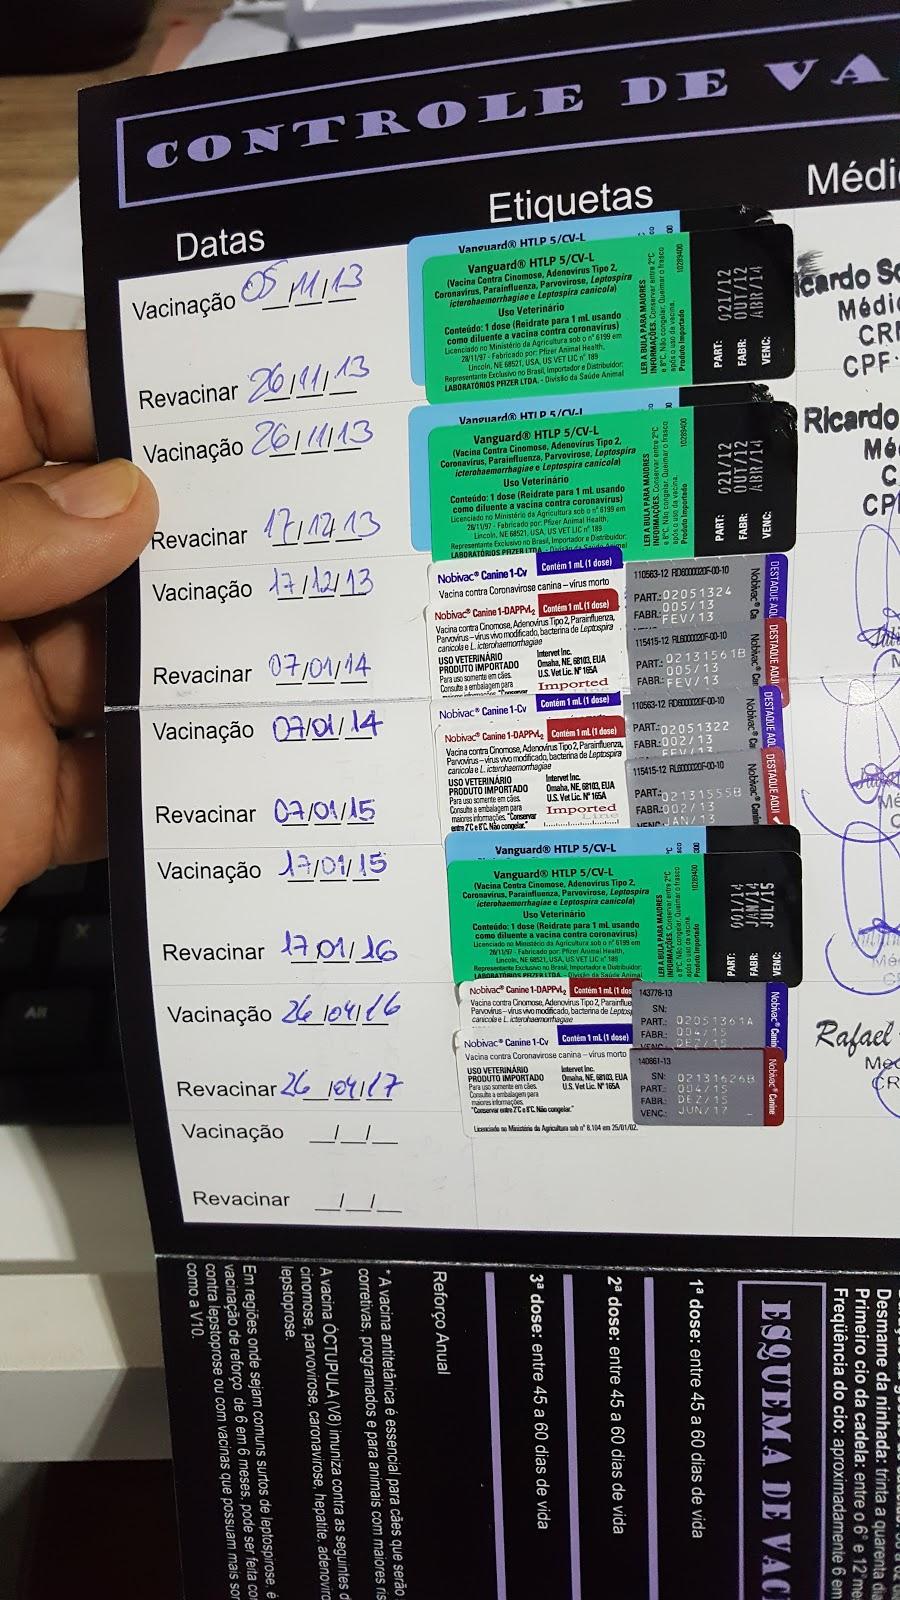 CONTROLE DE VA
Datas
Etiquetas
Médi
Vacinação 05/11/13
Revacinar 26/11/13
Vanguard® HTLP 5/CV-L
Vanguard® HTLP 5/CV-L
(Vacina Contra Cinomose, Adenovirus Tipo 2,
Coronavírus, Parainfluenza, Parvovirose, Leptospira
icterohaemorrhagiae e Leptospira canicola)
Uso Veterinário
Conteúdo: 1 dose (Reidrate para 1 mL usando
como diluente a vacina contra coronavírus)
Licenciado no Ministério da Agricultura sob o nº 6199 em
28/11/97 - Fabricado por: Pfizer Animal Health,
Lincoln, NE 68521, USA, US VET LIC nº 189
Representante Exclusivo no Brasil, Importador e Distribuidor:
LABORATÓRIOS PFIZER LTDA. - Divisão da Saúde Animal
LER A BULA PARA MAIORES
INFORMAÇÕES. Conservar entre 2ºC
e 8ºC. Não congelar. Queimar o frasco
após o uso da vacina.
Produto Importado
10289400
PART: 021/12
FABR: OUT/12
VENC: ABR/14
icardo So
Médi
CR
CPF
Vacinação 26/11/13
Revacinar 17/12/13
Vanguard® HTLP 5/CV-L
Vanguard® HTLP 5/CV-L
(Vacina Contra Cinomose, Adenovirus Tipo 2,
Coronavírus, Parainfluenza, Parvovirose, Leptospira
icterohaemorrhagiae e Leptospira canicola)
Uso Veterinário
Conteúdo: 1 dose (Reidrate para 1 mL usando
como diluente a vacina contra coronavírus)
Licenciado no Ministério da Agricultura sob o nº 6199 em
28/11/97 - Fabricado por: Pfizer Animal Health,
Lincoln, NE 68521, USA, US VET LIC nº 189
Representante Exclusivo no Brasil, Importador e Distribuidor:
LABORATÓRIOS PFIZER LTDA. - Divisão da Saúde Animal
LER A BULA PARA MAIORES
INFORMAÇÕES. Conservar entre 2ºC
e 8ºC. Não congelar. Queimar o frasco
após o uso da vacina.
Produto Importado
10289400
PART: 021/12
FABR: OUT/12
VENC: ABR/14
Ricardo
Mé
C
CP
Vacinação 17/12/13
Revacinar 07/01/14
Nobivac® Canine 1-Cv Contém 1 mL (1 dose)
Vacina contra Coronavirose canina – vírus morto
110563-12 RD6000020F-00-10
PART.: 02051324
FABR.: 005/13
FEV/13
DESTAQUE AQUI
Nobivac® Canine 1-DAPPvL2 Contém 1 mL (1 dose)
Vacina contra Cinomose, Adenovírus Tipo 2, Parainfluenza,
Parvovírus – vírus vivo modificado, bacterina de Leptospira
canicola e L. icterohaemorrhagiae
USO VETERINÁRIO
PRODUTO IMPORTADO
Para uso somente em cães.
Consulte a embalagem para
Intervet Inc.
Omaha, NE, 68103, EUA
U.S. Vet Lic. Nº 165A
Imported
115415-12 RL6000020F-00-10
PART.: 02131561B
005/13
FABR.: FEV/13
DESTAQUE AQUI
Vacinação 07/01/14
Revacinar 07/01/15
Nobivac® Canine 1-Cv Contém 1 mL (1 dose)
110563-12 RD6000020F-00-10
PART.: 02051322
FABR.: 002/13
DESTAQUE AQUI
Nobivac® Canine 1-DAPPvL2 Contém 1 mL (1 dose)
Vacina contra Cinomose, Adenovírus Tipo 2, Parainfluenza,
Parvovírus – vírus vivo modificado, bacterina de Leptospira
canicola e L. icterohaemorrhagiae
USO VETERINÁRIO
PRODUTO IMPORTADO
Para uso somente em cães.
Consulte a embalagem para
maiores informações. "Conservar
entre 2ºC e 8ºC. Não congelar."
Intervet Inc.
Omaha, NE, 68103, EUA
U.S. Vet Lic. Nº 165A
Imported
Line
115415-12 RL6000020F-00-10
PART.: 02131555B
FABR.: 002/13
VENC JAN/13
DESTAQUE AQUI
Vacinação 17/01/15
Revacinar 17/01/16
Vanguard® HTLP 5/CV-L
Vanguard® HTLP 5/CV-L
(Vacina Contra Cinomose, Adenovirus Tipo 2,
Coronavírus, Parainfluenza, Parvovirose, Leptospira
icterohaemorrhagiae e Leptospira canicola)
Uso Veterinário
Conteúdo: 1 dose (Reidrate para 1 mL usando
como diluente a vacina contra coronavírus)
Licenciado no Ministério da Agricultura sob o nº 6199 em
28/11/97 - Fabricado por: Pfizer Animal Health,
Lincoln, NE 68521, USA, US VET LIC nº 189
Representante Exclusivo no Brasil, Importador e Distribuidor:
LER A BULA PARA MAIORES
INFORMAÇÕES. Conservar entre 2ºC
e 8ºC. Não congelar. Queimar o frasco
após o uso da vacina.
Produto Importado
10289400
PART: 001/14
FABR: JAN/14
VENC: JUL/15
Vacinação 26/04/16
Revacinar 26/04/17
Nobivac® Canine 1-DAPPvL2 Contém 1 mL (1 dos
Vacina contra Cinomose, Adenovírus Tipo 2, Parainflue
Parvovírus – vírus vivo modificado, bacterina de Leptosp
canicola e L. icterohaemorrhagiae
143778-13
SN:
PART.: 02051361A
FABR.: 004/15
Nobivac® Canin
Nobivac® Canine 1-Cv Contém 1 mL (1 dose)
Vacina contra Coronavirose canina – vírus morto
USO VETERINÁRIO
PRODUTO IMPORTADO
Para uso somente em cães.
Consulte a embalagem para
maiores informações.
"Conservar entre 2ºC e 8ºC. Não congelar."
Intervet Inc.
Omaha, NE, 68103, EUA
U.S. Vet Lic. Nº 165A
Licenciado no Ministério da Agricultura sob nº 8.104 em 25/01/02.
140861-13
SN: 02131626B
PART.: 004/15
FABR.: DEZ/15
VENC.: JUN/17
Nobivac® Canine
Rafael
Méd
CR
Vacinação __/__/__
Revacinar __/__/__
Desmame da ninhada: trinta a quarenta dia
Primeiro cio da cadela: entre o 6º e 12º me
Freqüência do cio: aproximadamente 6 em
ESQUEMA DE VAC
1ª dose: entre 45 a 60 dias de vida
2ª dose: entre 45 a 60 dias de vida
3ª dose: entre 45 a 60 dias de vida
Reforço Anual
* A vacina antitetânica é essencial para cães que serão
corretivas, programados e para animais com maiores ris
A vacina ÓCTUPULA (V8) imuniza contra as seguintes d
cinomose, parvovirose, caronavirose, hepatite, adenovíro
lepstoprose.
Em regiões onde sejam comuns surtos de leptospirose, é
vacinação de reforço de 6 em 6 meses, pode ser feita co
contra lepstoprose ou com vacinas que possuam mais sor
como a V10.